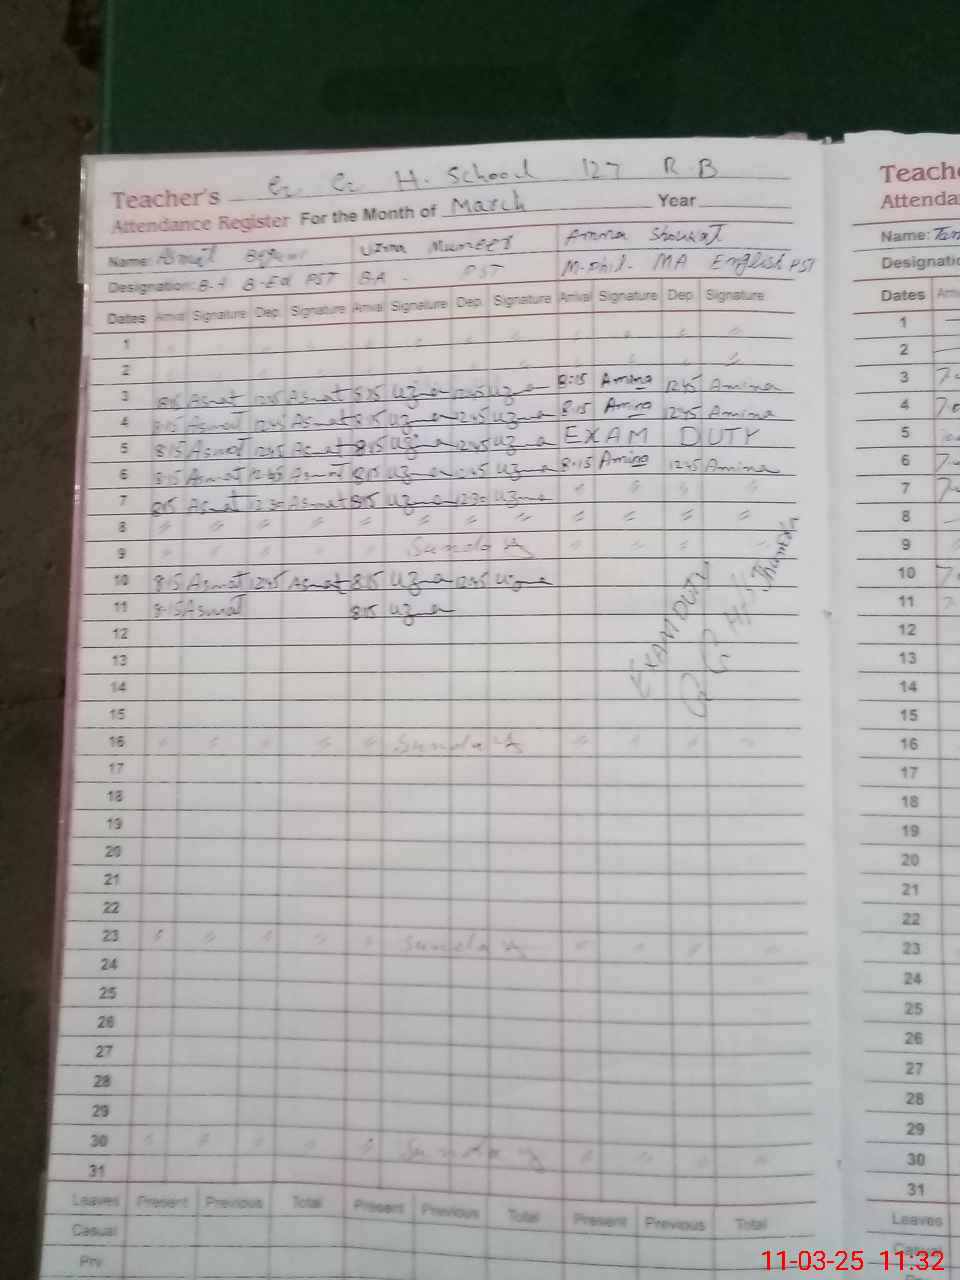 Teacher's G. G. H. School 127 R.B
Attendance Register For the Month of March Year
Name: Asmat Uzma Muneer Amina Shoukat
Designation: B-Ed PST BA - PST M.Phil. MA English PST
Dates Arrival Signature Dep. Signature Arrival Signature Dep. Signature Arrival Signature Dep. Signature
1 " "
2 " "
3 8:15 Asmat 12:45 Asmat 8:15 Uzma 12:45 Uzma 8:15 Amina 12:45 Amina
4 8:15 Asmat 12:45 Asmat 8:15 Uzma 12:45 Uzma 8:15 Amina 12:45 Amina
5 8:15 Asmat 12:45 Asmat 8:15 Uzma 12:45 Uzma EXAM DUTY
6 8:15 Asmat 12:45 Asmat 8:15 Uzma 12:45 Uzma 8:15 Amina 12:45 Amina
7 8:15 Asmat 12:30 Asmat 8:15 Uzma 12:30 Uzma " " " "
8 " " " " " " " " " " " "
9 " " " " Sunday " " "
10 8:15 Asmat 12:45 Asmat 8:15 Uzma 12:45 Uzma
11 8:15 Asmat 8:15 Uzma
EXAM DUTY
12
13
14
15
16 " " " " " Sunday " " " "
17
18
19
20
21
22
23 " " " " " Sunday " " " "
24
25
26
27
28
29
30 " " " " " Sunday " " " "
31
Leaves Present Previous Total Present Previous Total Present Previous Total
Casual
Priv.
Teache
Attenda
Name:
Designatio
Dates Arri
1
2
3
4
5
6
7
8
9
10
11
12
13
14
15
16
17
18
19
20
21
22
23
24
25
26
27
28
29
30
31
Leaves
Casual
11-03-25 11:32